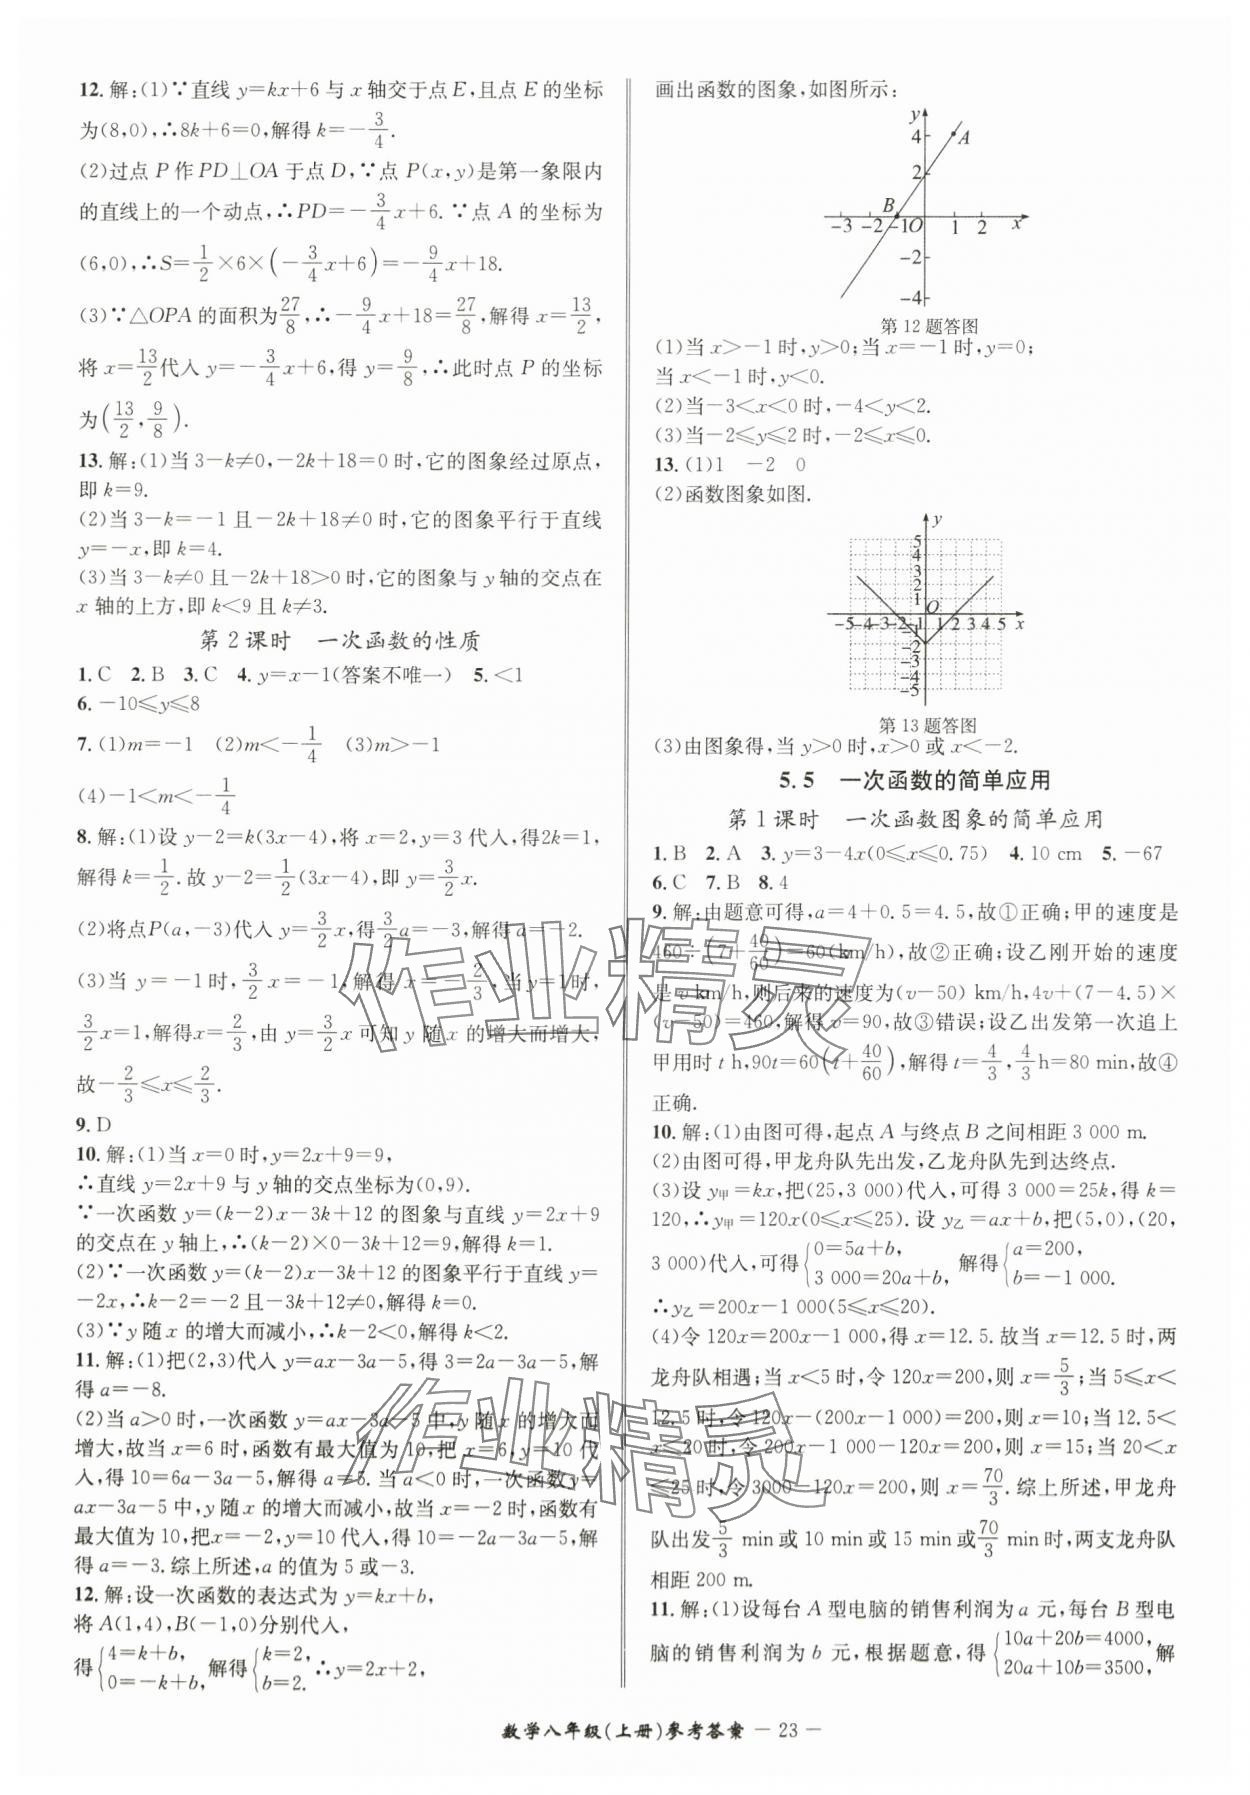 12. 解:(1)∵直线 y=kx+6 与 x 轴交于点 E,且点 E 的坐标
为(8,0),∴8k+6=0,解得 k=-3/4.
(2)过点 P 作 PD⊥OA 于点 D,∵点 P(x,y)是第一象限内
的直线上的一个动点,∴PD=-3/4x+6.∵点 A 的坐标为
(6,0),∴S=1/2×6×(-3/4x+6)=-9/4x+18.
(3)∵△OPA 的面积为27/8,∴-9/4x+18=27/8,解得 x=13/2,
将 x=13/2代入 y=-3/4x+6,得 y=9/8,∴此时点 P 的坐标
为(13/2,9/8).
13. 解:(1)当 3-k≠0,-2k+18=0 时,它的图象经过原点,
即 k=9.
(2)当 3-k=-1 且-2k+18≠0 时,它的图象平行于直线
y=-x,即 k=4.
(3)当 3-k≠0 且-2k+18>0 时,它的图象与 y 轴的交点在
x 轴的上方,即 k<9 且 k≠3.
第 2 课时 一次函数的性质
1. C 2. B 3. C 4. y=x-1(答案不唯一) 5. <1
6. -10≤y≤8
7. (1)m=-1 (2)m<-1/4 (3)m>-1
(4)-1<m<-1/4
8. 解:(1)设 y-2=k(3x-4),将 x=2,y=3 代入,得2k=1,
解得 k=1/2.故 y-2=1/2(3x-4),即 y=3/2x.
(2)将点P(a,-3)代入 y=3/2x,得3/2a=-3,解得 a=-2.
(3)当 y=-1 时,3/2x=-1,解得 x=-2/3,当 y=1时,
3/2x=1,解得x=2/3,由 y=3/2x 可知 y 随 x 的增大而增大,
故-2/3≤x≤2/3.
9. D
10. 解:(1)当 x=0 时,y=2x+9=9,
∴直线 y=2x+9 与 y 轴的交点坐标为(0,9).
∵一次函数 y=(k-2)x-3k+12 的图象与直线 y=2x+9
的交点在 y 轴上,∴(k-2)×0-3k+12=9,解得 k=1.
(2)∵一次函数 y=(k-2)x-3k+12 的图象平行于直线 y=
-2x,∴k-2=-2 且-3k+12≠0,解得 k=0.
(3)∵y 随 x 的增大而减小,∴k-2<0,解得 k<2.
11. 解:(1)把(2,3)代入 y=ax-3a-5,得 3=2a-3a-5,解
得 a=-8.
(2)当 a>0 时,一次函数 y=ax-3a-5 中,y 随 x 的增大而
增大,故当 x=6 时,函数有最大值为 10,把 x=6,y=10 代
入,得 10=6a-3a-5,解得 a=5. 当 a<0 时,一次函数 y=
ax-3a-5 中,y 随 x 的增大而减小,故当 x=-2 时,函数有
最大值为 10,把x=-2,y=10 代入,得 10=-2a-3a-5,解
得 a=-3.综上所述,a 的值为 5 或-3.
12. 解:设一次函数的表达式为 y=kx+b,
将 A(1,4),B(-1,0)分别代入,
得{4=k+b, 0=-k+b, 解得{k=2, b=2. ∴y=2x+2,
画出函数的图象,如图所示:
y
4
A
2
B
-3 -2 -1 O 1 2 x
-2
-4
第 12 题答图
(1)当 x>-1 时,y>0;当 x=-1 时,y=0;
当 x<-1 时,y<0.
(2)当-3<x<0 时,-4<y<2.
(3)当-2≤y≤2 时,-2≤x≤0.
13. (1)1 -2 0
(2)函数图象如图.
y
5
4
3
2
1
O
-5 -4 -3 -2 -1 1 2 3 4 5 x
-1
-2
-3
-4
-5
第 13 题答图
(3)由图象得,当 y>0 时,x>0 或 x<-2.
5. 5 一次函数的简单应用
第 1 课时 一次函数图象的简单应用
1. B 2. A 3. y=3-4x(0≤x≤0.75) 4. 10 cm 5. -67
6. C 7. B 8. 4
9. 解:由题意可得,a=4+0.5=4.5,故①正确;甲的速度是
460÷(7+40/60)=60(km/h),故②正确;设乙刚开始的速度
是 v km/h,则后来的速度为(v-50) km/h,4v+(7-4.5)×
(v-50)=460,解得 v=90,故③错误;设乙出发第一次追上
甲用时 t h,90t=60(t+40/60),解得 t=4/3,4/3h=80 min,故④
正确.
10. 解:(1)由图可得,起点 A 与终点 B 之间相距 3 000 m.
(2)由图可得,甲龙舟队先出发,乙龙舟队先到达终点.
(3)设 y甲=kx,把(25,3 000)代入,可得 3 000=25k,得 k=
120,∴y甲=120x(0≤x≤25).设 y乙=ax+b,把(5,0),(20,
3 000)代入,可得{0=5a+b, 3 000=20a+b, 解得{a=200, b=-1 000.
∴y乙=200x-1 000(5≤x≤20).
(4)令 120x=200x-1 000,得 x=12.5.故当 x=12.5 时,两
龙舟队相遇;当 x<5 时,令 120x=200,则 x=5/3;当 5≤x<
12.5 时,令 120x-(200x-1 000)=200,则 x=10;当 12.5<
x<20 时,令 200x-1 000-120x=200,则 x=15;当 20<x
≤25 时,令 3000-120x=200,则 x=70/3.综上所述,甲龙舟
队出发5/3 min或 10 min或 15 min或70/3 min时,两支龙舟队
相距 200 m.
11. 解:(1)设每台 A 型电脑的销售利润为 a 元,每台 B 型电
脑的销售利润为 b 元,根据题意,得{10a+20b=4000, 20a+10b=3500, 解
数学八年级(上册)参考答案 — 23 —
作业精灵
作业精灵